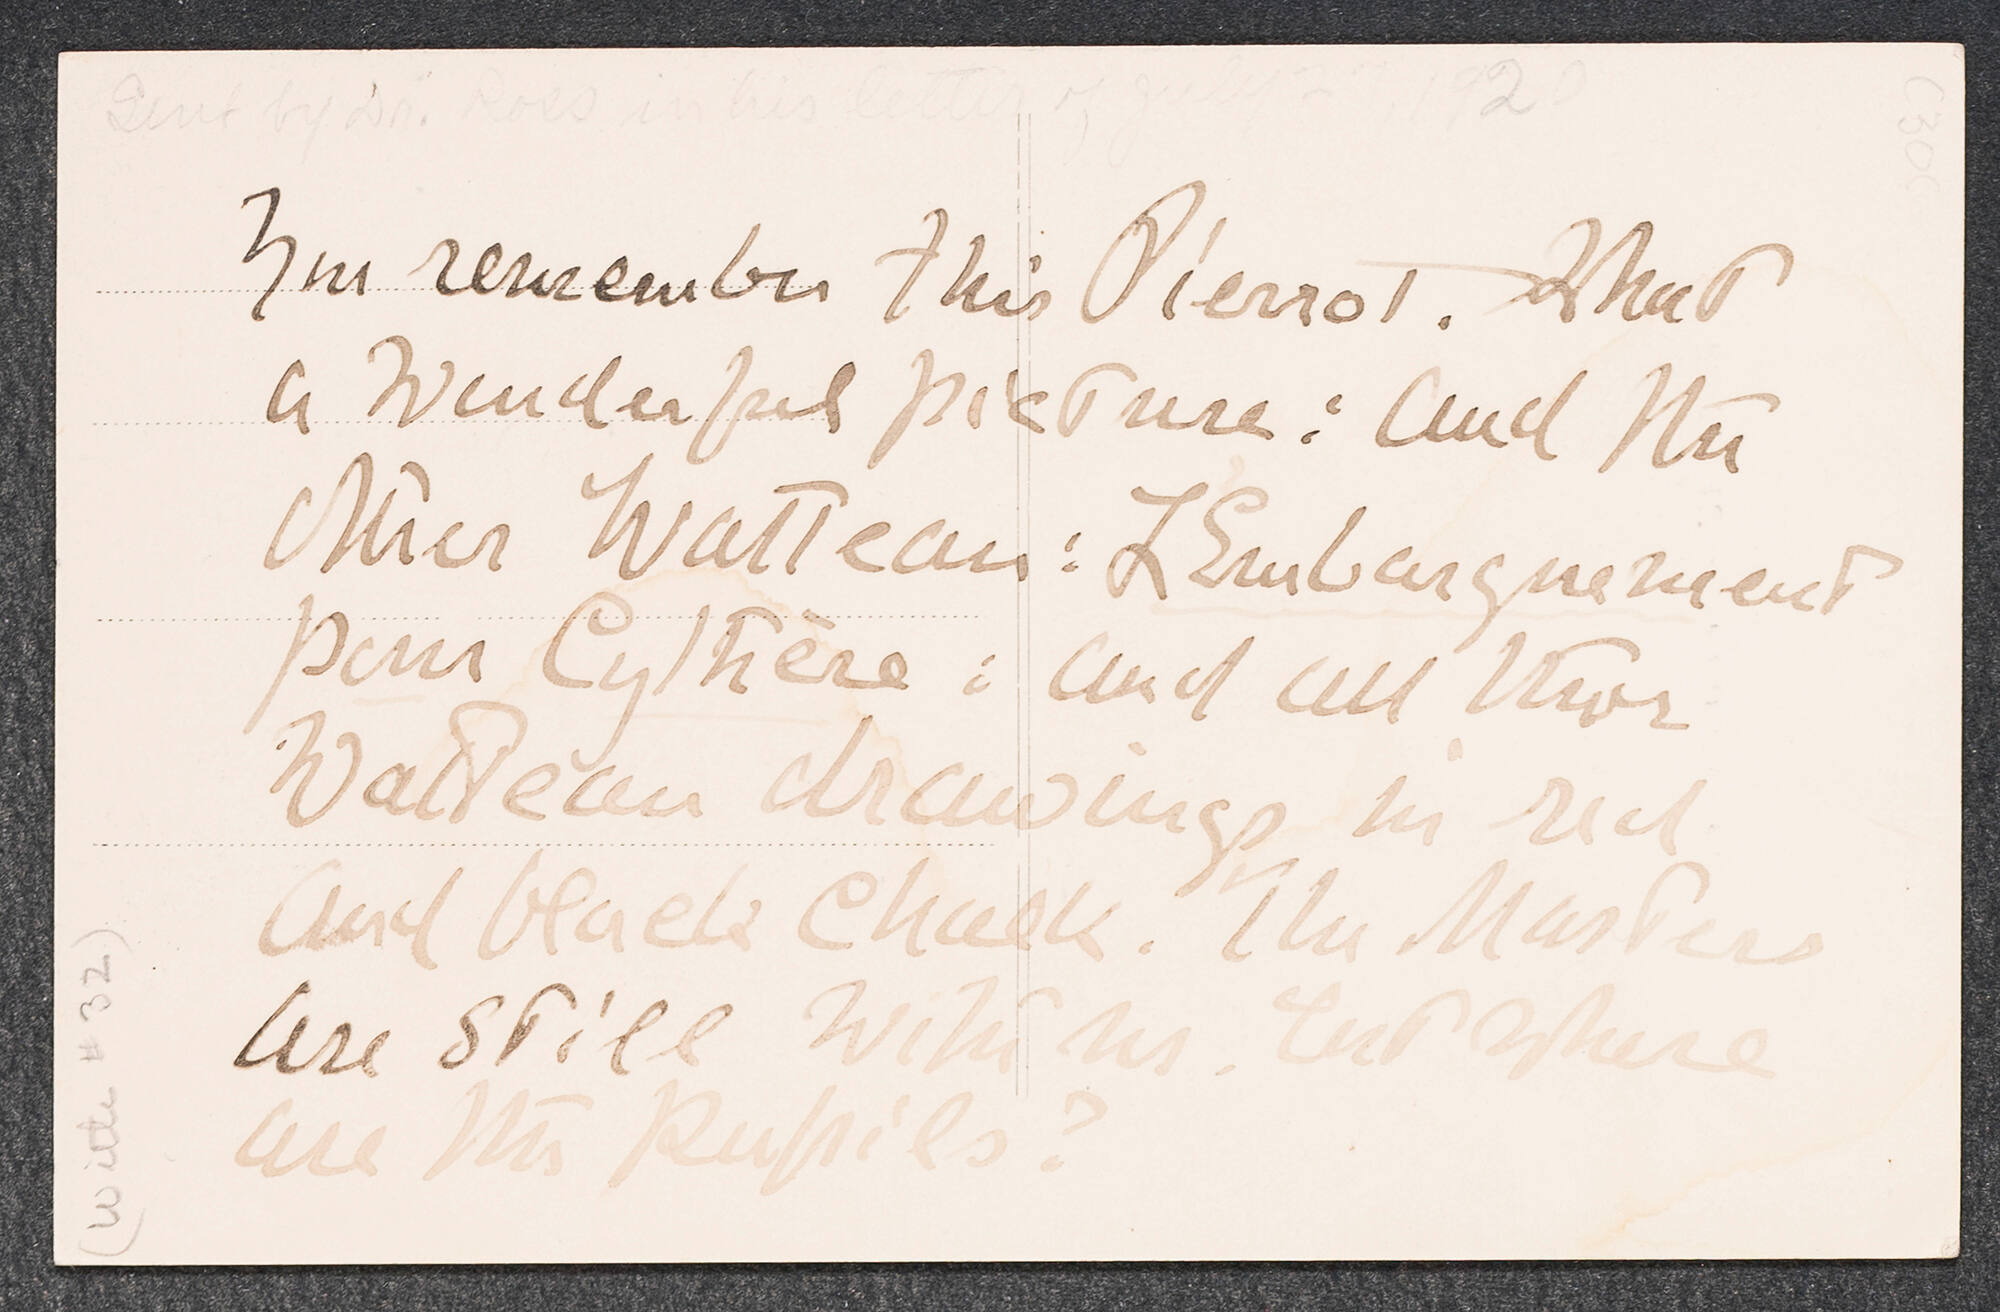 Sent by Dr. Ross in his letter of July 1920
You remember this Pierrot. What
a wonderful picture: and the
other Watteau: L'Embarquement
pour Cythère: and all those
Watteau drawings in red
and black chalk. The Masters
are still with us. But where
are the Pupils?
(with #32)